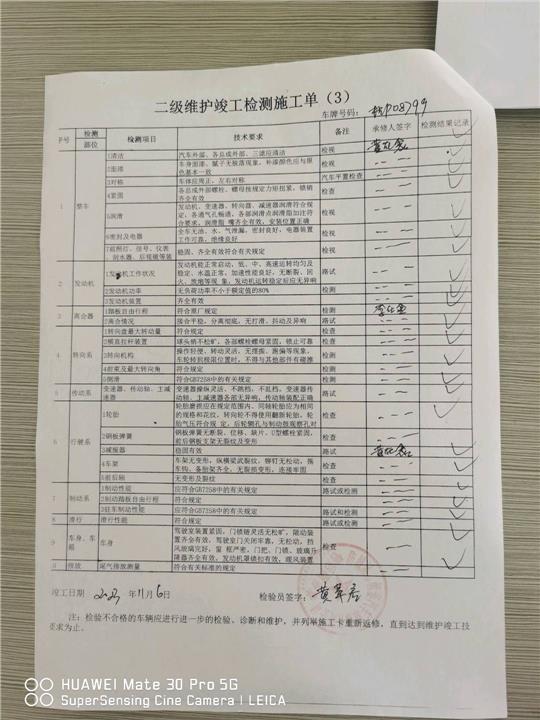 二级维护竣工检测施工单（3）
车牌号码：
序号 检测部位 检测项目 技术要求 备注 承修人签字 检测结果记录
1 整车 1清洁 汽车外部、各总成外部、三滤应清洁 检视
2面漆 车身面漆、腻子无脱落现象，补漆颜色应与原色基本一致 检视
3对称 车体应周正，左右对称 汽车平置检查
4紧固 各总成外部螺栓、螺母按规定力矩拧紧，锁销齐全有效 检查
5润滑 发动机、变速器、转向器、减速器润滑符合规定，各通气孔畅通，各部润滑点润滑脂加注符合要求，润滑脂 嘴齐全有效，安装位置正确 检视
6密封及电器 全车无油、水、气泄漏，密封良好，电器装置工作可靠，绝缘良好 检视
7前照灯、信号、仪表刮水器、后视镜等装 稳固、齐全有效符合有关规定 检视
2 发动机 1发动机工作状况 发动机能正常启动，低、中、高速运转均匀及稳定、水温正常，加速性能良好，无断裂、回火、放炮等现 象，发动机运转稳定后应无异响 路试
2发动机功率 无负荷功率不小于额定值的80% 检测
3发动机装置 齐全有效
3 离合器 1踏板自由行程 符合原厂规定 检测
2离合情况 接合平稳，分离彻底，无打滑、抖动及异响 路试
4 转向系 1转向盘最大转动量 符合规定 检查
2横直拉杆装置 球头销不松旷，各部螺栓螺母紧固，锁止可靠 检查
3转向机构 操作轻便、转动灵活，无摆振、跑偏等现象，车轮转到极限位置时，不得与其他部件有碰擦 路试
4前束及最大转向角 符合规定 检测
5侧滑 符合GB7258中的有关规定 检测
5 传动系 变速器、传动轴、主减速器 变速器操纵灵活，不跳档、不乱档，变速器传动轴、主减速器各部无异响，传动轴装配正确 路试
6 行驶系 1轮胎 轮胎磨损应在规定范围内，同轴轮胎应为相同的规格和花纹，转向轮不得使用翻新轮胎，轮胎气压符合规定，后轮辋孔与制动鼓观察孔对 检查
2钢板弹簧 钢板弹簧无断裂、位移、缺片，U型螺栓紧固，前后钢板支架无裂纹及变形 检查
3减振器 稳固有效 路试
4车架 车架无变形，纵横梁无裂纹，铆钉无松动，拖车钩、备胎架齐全，无裂损变形，连接牢固 检查
5前后轴 无变形及裂纹 检查
7 制动系 1制动性能 应符合GB7258中的有关规定 路试或检测
2制动踏板自由行程 符合规定 检查
3驻车制动性能 应符合GB7258中的有关规定 路试或检测
8 滑行 滑行性能 符合规定 路试或检测
9 车身、车厢 车身 驾驶室装置紧固，门锁链灵活无松旷，限动装置齐全有效，驾驶室门关闭牢靠，无松动，挡风玻璃完好，窗 框严密，门把、门锁、玻璃升降器齐全有效，发动机罩锁扣有效，暖风装置 检查
排放 尾气排放测量 符合有关标准的规定 检测
竣工日期 年11月6日 检验员签字：
注：检验不合格的车辆应进行进一步的检验、诊断和维护，并列举施工卡重新返修，直到达到维护竣工技
要求为止。
HUAWEI Mate 30 Pro 5G
SuperSensing Cine Camera | LEICA